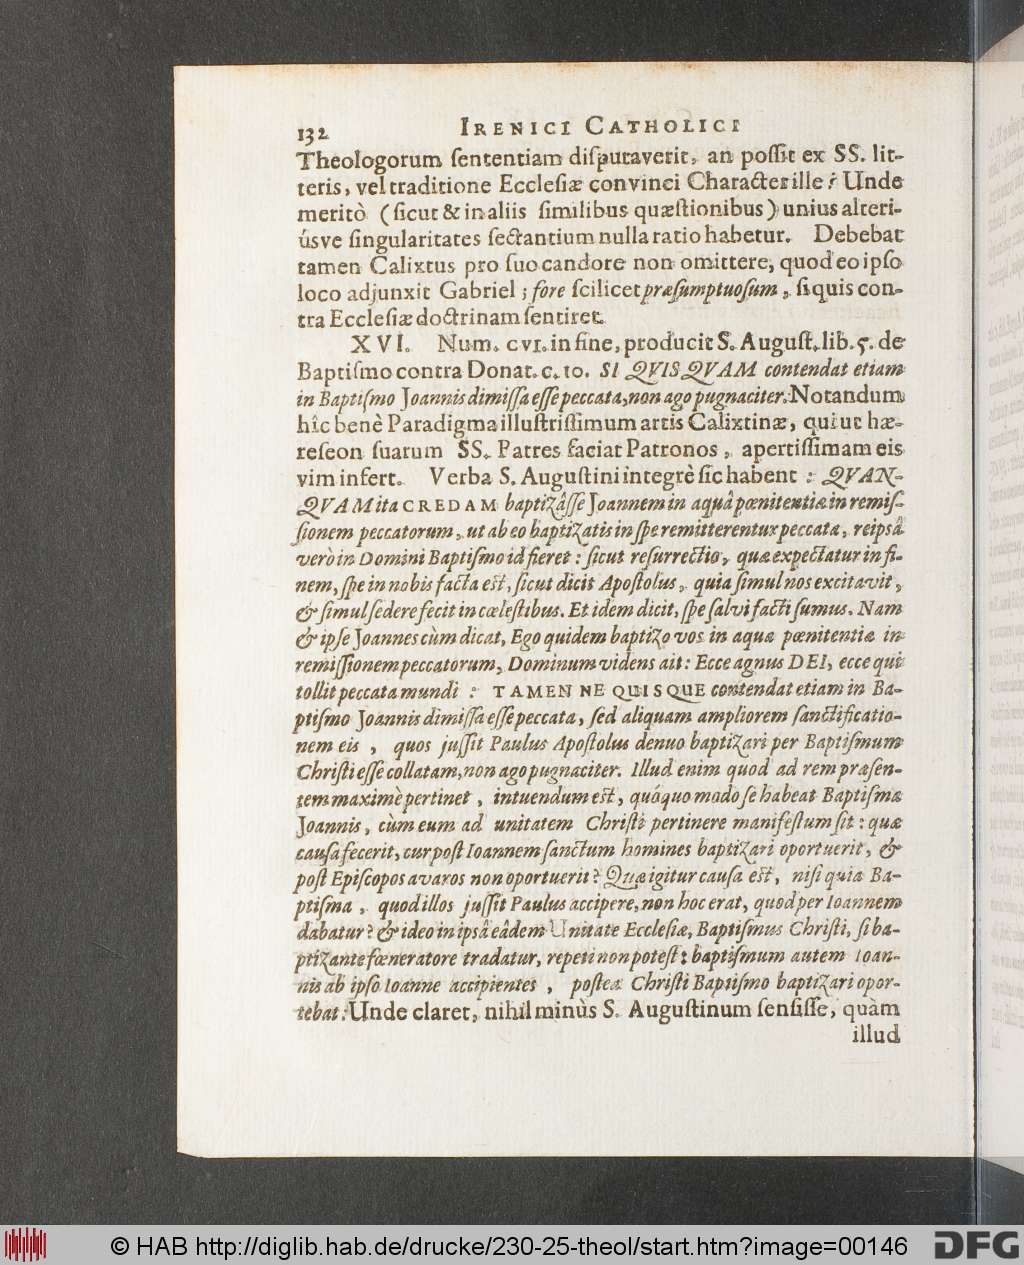 132 IRENICI CATHOLICI
Theologorum ſententiam diſputaverit, an poſſit ex SS. lit-
teris, vel traditione Eccleſiæ convinci Character ille? Unde
meritò (ſicut & in aliis ſimilibus quæſtionibus) unius alteri-
úsve ſingularitates ſectantium nulla ratio habetur. Debebat
tamen Calixtus pro ſuo candore non omittere, quod eo ipſo
loco adjunxit Gabriel; fore ſcilicet præſumptuoſum, ſi quis con-
tra Eccleſiæ doctrinam ſentiret.
XVI. Num. CVI. in fine, producit S. Auguſt. lib. 5. de
Baptiſmo contra Donat. c. 10. SI QVISQVAM contendat etiam
in Baptiſmo Joannis dimiſſa eſſe peccata, non ago pugnaciter. Notandum
hîc benè Paradigma illuſtriſſimum artis Calixtinæ, qui ut hæ-
reſeon ſuarum SS. Patres faciat Patronos, apertiſſimam eis
vim infert. Verba S. Auguſtini integrè ſic habent: QVAN-
QVAM ita CREDAM baptizâſſe Joannem in aquâ pœnitentiæ in remiſ-
ſionem peccatorum, ut ab eo baptizatis in ſpe remitterentur peccata, reipsâ
verò in Domini Baptiſmo id fieret: ſicut reſurrectio, quæ expectatur in fi-
nem, ſpe in nobis facta eſt, ſicut dicit Apoſtolus, quia ſimul nos excitavit,
& ſimul ſedere fecit in cœleſtibus. Et idem dicit, ſpe ſalvi facti ſumus. Nam
& ipſe Joannes cùm dicat, Ego quidem baptizo vos in aqua pœnitentiæ in
remiſſionem peccatorum, Dominum videns ait: Ecce agnus DEI, ecce qui
tollit peccata mundi: TAMEN NE QUISQUE contendat etiam in Ba-
ptiſmo Joannis dimiſſa eſſe peccata, ſed aliquam ampliorem ſanctificatio-
nem eis, quos juſſit Paulus Apoſtolus denuo baptizari per Baptiſmum
Chriſti eſſe collatam, non ago pugnaciter. Illud enim quod ad rem præſen-
tem maximè pertinet, intuendum eſt, quóquo modo ſe habeat Baptiſma
Joannis, cùm eum ad unitatem Chriſti pertinere manifeſtum ſit: quæ
cauſa fecerit, cur poſt Ioannem ſanctum homines baptizari oportuerit, &
poſt Epiſcopos avaros non oportuerit? Quæ igitur cauſa eſt, niſi quia Ba-
ptiſma, quod illos juſſit Paulus accipere, non hoc erat, quod per Ioannem
dabatur? & ideo in ipsâ eâdem Unitate Eccleſiæ, Baptiſmus Chriſti, ſi ba-
ptizante fœneratore tradatur, repeti non poteſt: baptiſmum autem Ioan-
nis ab ipſo Ioanne accipientes, poſtea Chriſti Baptiſmo baptizari opor-
tebat. Unde claret, nihil minùs S. Auguſtinum ſenſiſſe, quàm
illud
© HAB http://diglib.hab.de/drucke/230-25-theol/start.htm?image=00146 DFG